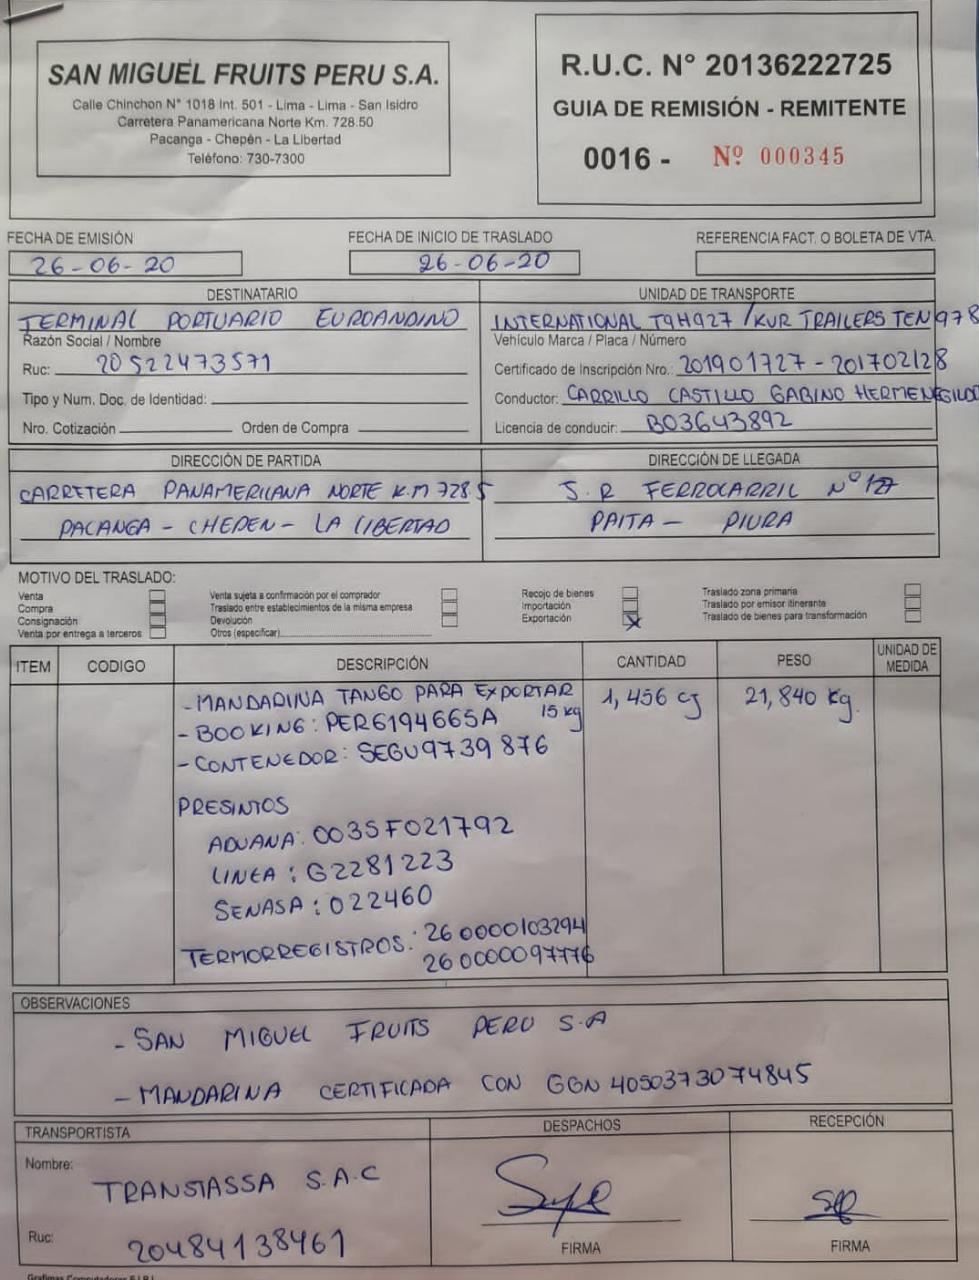 SAN MIGUEL FRUITS PERU S.A.
Calle Chinchon N° 1018 Int. 501 - Lima - Lima - San Isidro
Carretera Panamericana Norte Km. 728.50
Pacanga - Chepén - La Libertad
Teléfono: 730-7300
R.U.C. N° 20136222725
GUIA DE REMISIÓN - REMITENTE
0016 - Nº 000345
FECHA DE EMISIÓN
26-06-20
FECHA DE INICIO DE TRASLADO
26-06-20
REFERENCIA FACT. O BOLETA DE VTA.
DESTINATARIO
TERMINAL PORTUARIO EUROANDINO
Razón Social / Nombre
Ruc: 20522473571
Tipo y Num. Doc. de Identidad:
Nro. Cotización Orden de Compra
UNIDAD DE TRANSPORTE
INTERNATIONAL T9H927 / KUR TRAILERS TEN978
Vehículo Marca / Placa / Número
Certificado de Inscripción Nro.: 201901727 - 201702128
Conductor: CARRILLO CASTILLO GABINO HERMENEGILDO
Licencia de conducir: B03643892
DIRECCIÓN DE PARTIDA
CARRETERA PANAMERICANA NORTE K.M 728.5
PACANGA - CHEPEN - LA LIBERTAD
DIRECCIÓN DE LLEGADA
J.R FERROCARRIL Nº 127
PAITA - PIURA
MOTIVO DEL TRASLADO:
Venta
Compra
Consignación
Venta por entrega a terceros
Venta sujeta a confirmación por el comprador
Traslado entre establecimientos de la misma empresa
Devolución
Otros (especificar)
Recojo de bienes
Importación
Exportación X
Traslado zona primaria
Traslado por emisor itinerante
Traslado de bienes para transformación
ITEM CODIGO DESCRIPCIÓN CANTIDAD PESO UNIDAD DE MEDIDA
- MANDARINA TANGO PARA EXPORTAR 1,456 cj 21,840 kg.
15 kg
- BOOKING: PER6194665A
- CONTENEDOR: SEGU9739876
PRESINTOS
ADUANA: 0035F021792
LINEA: G2281223
SENASA: 022460
TERMORREGISTROS: 260000103294
260000097776
OBSERVACIONES
- SAN MIGUEL FRUITS PERU S.A
- MANDARINA CERTIFICADA CON GGN 4050373074845
TRANSPORTISTA
Nombre: TRANSTASSA S.A.C
Ruc: 20484138461
DESPACHOS
FIRMA
RECEPCIÓN
FIRMA
Grafimas Computadores E.I.R.L